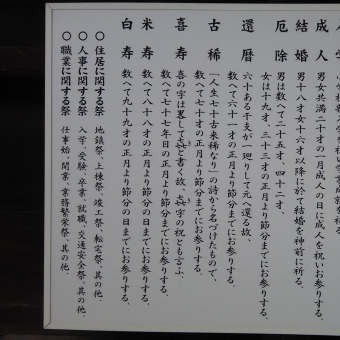 成人 男女共満二十才の一月成人の日に成人を祝いお参りする、
結婚 男十八才女十六才以降に於て結婚を神前に祈る。
厄除 男は数へて二十五才、四十二才、
女は十九才、三十三才の正月より節分までにお参りする。
還暦 六十ある干支が一廻りして元へ還る故、
数へて六十一才の正月より節分までにお参りする。
古稀 「人生七十古来稀なり」の詩から名づけたもので、
数へて七十才の正月より節分までにお参りする。
喜寿 喜の字は略して㐂と書く故、㐂字の祝とも言ふ、
数へて七十七年目の正月より節分までにお参りする、
米寿 数へて八十八才の正月より節分の日までにお参りする、
白寿 数へて九十九才の正月より節分の日までにお参りする、
○住居に関する祭 地鎮祭、上棟祭、竣工祭、転宅祭、其の他、
○人事に関する祭 入学、受験、卒業、就職、交通安全祭、其の他、
○職業に関する祭 仕事始、開業、業務繁栄祭、其の他、